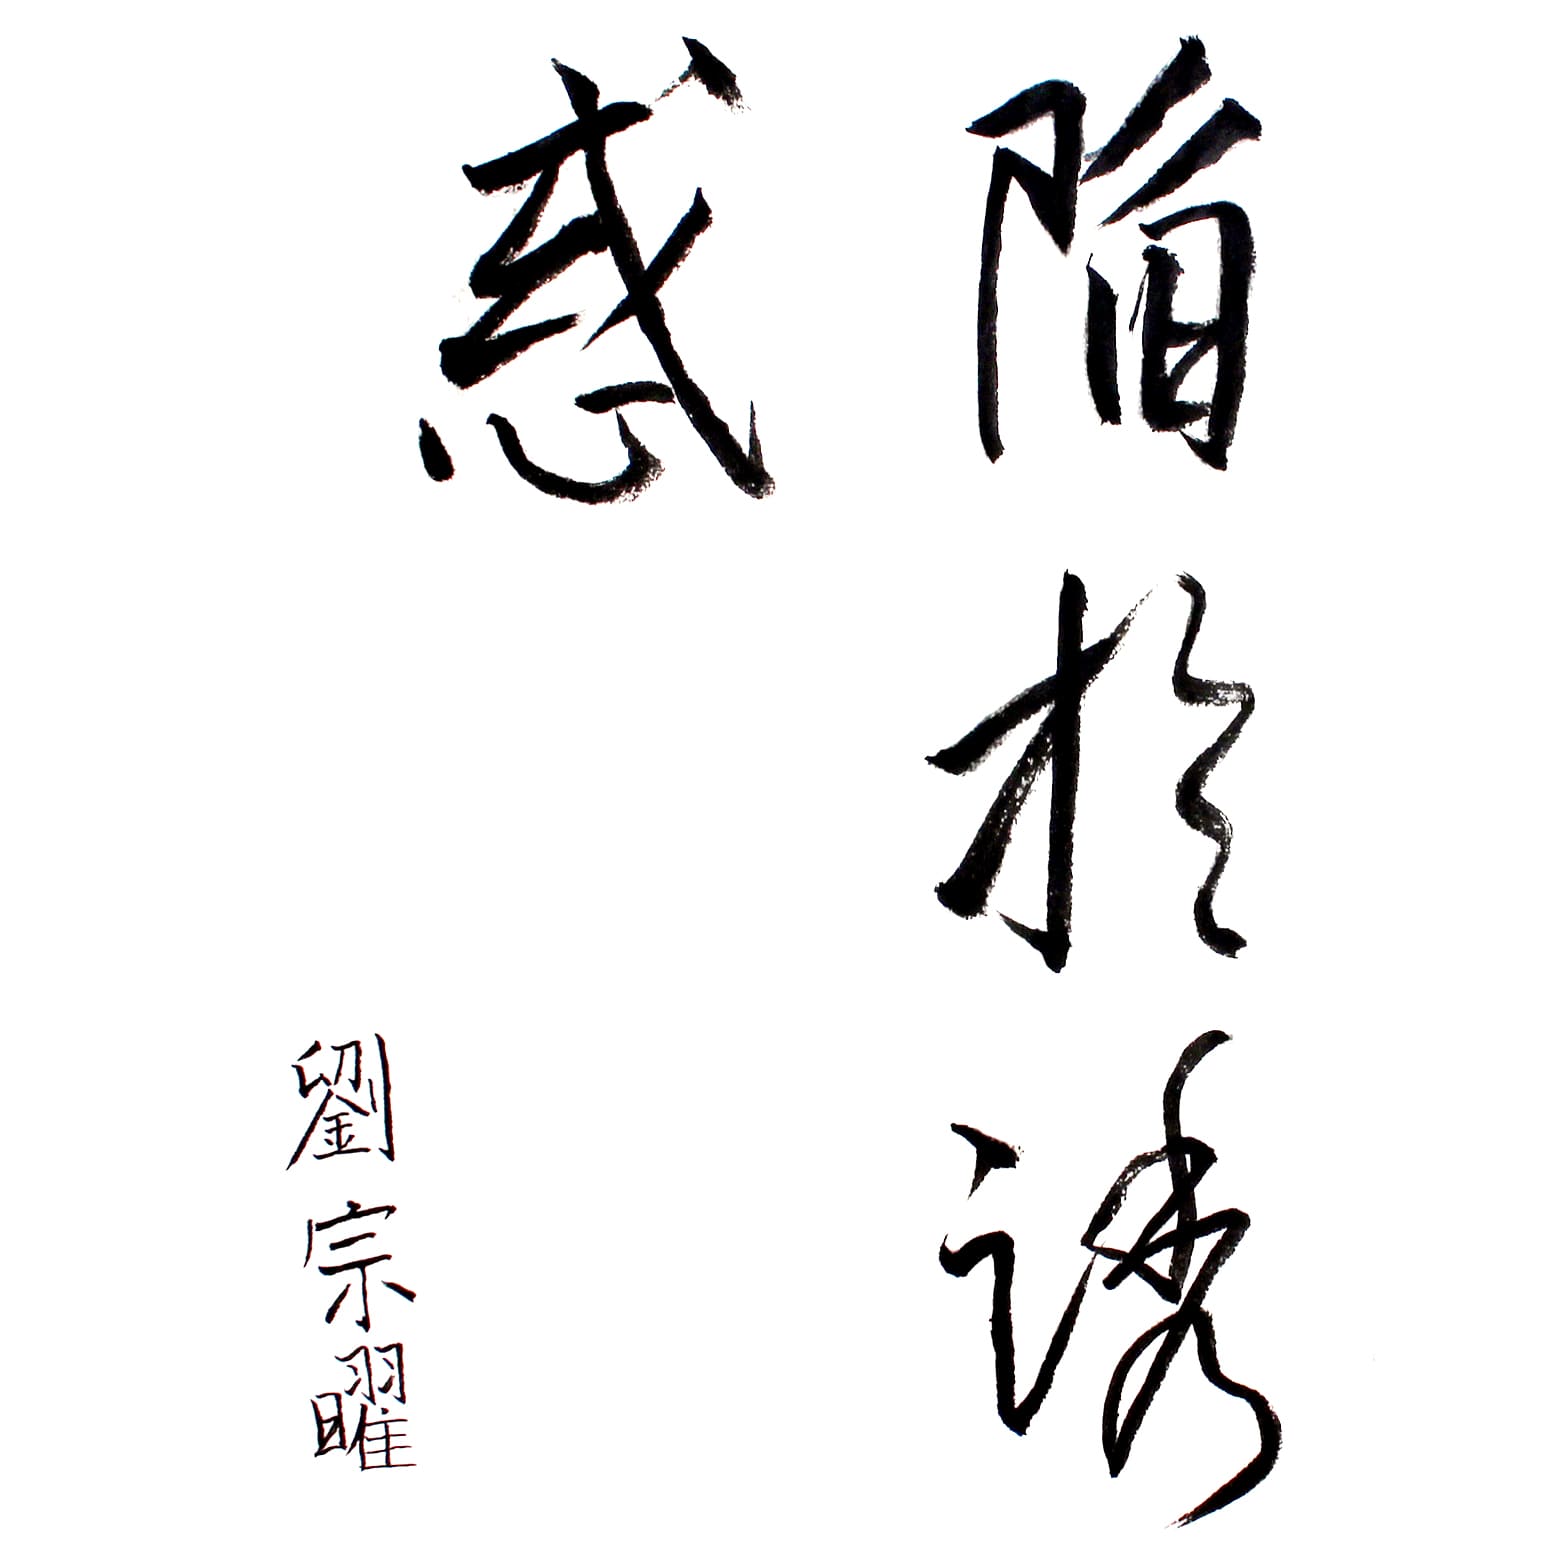 陷於誘
惑
劉宗曜